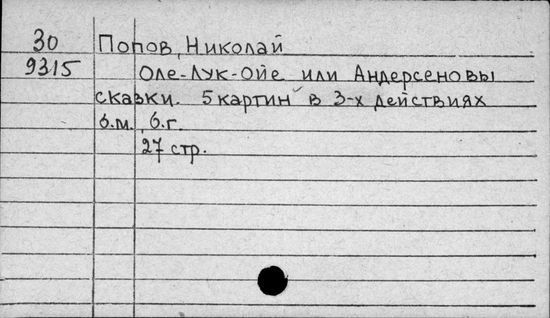 30 Попов, Николай
9315 Оле-Лук-Ойе или Андерсеновы
сказки. 5 картин в 3-х действиях
б.м., б.г.
27 стр.